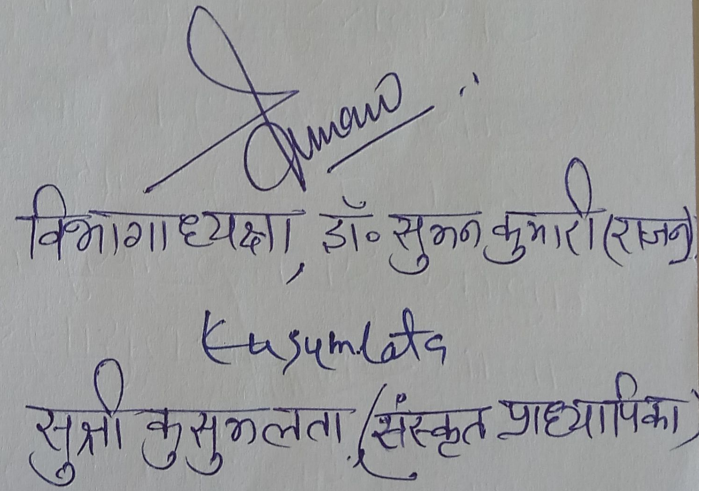 Suman
विभागाध्यक्षा, डॉ० सुमन कुमारी (राजन)
Kusumlata
सुश्री कुसुमलता (संस्कृत प्राध्यापिका)